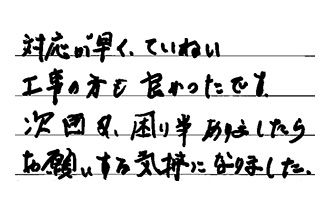 対応が早く、ていねい
工事の方も良かったです。
次回又、困り事ありましたら
お願いする気持になりました。